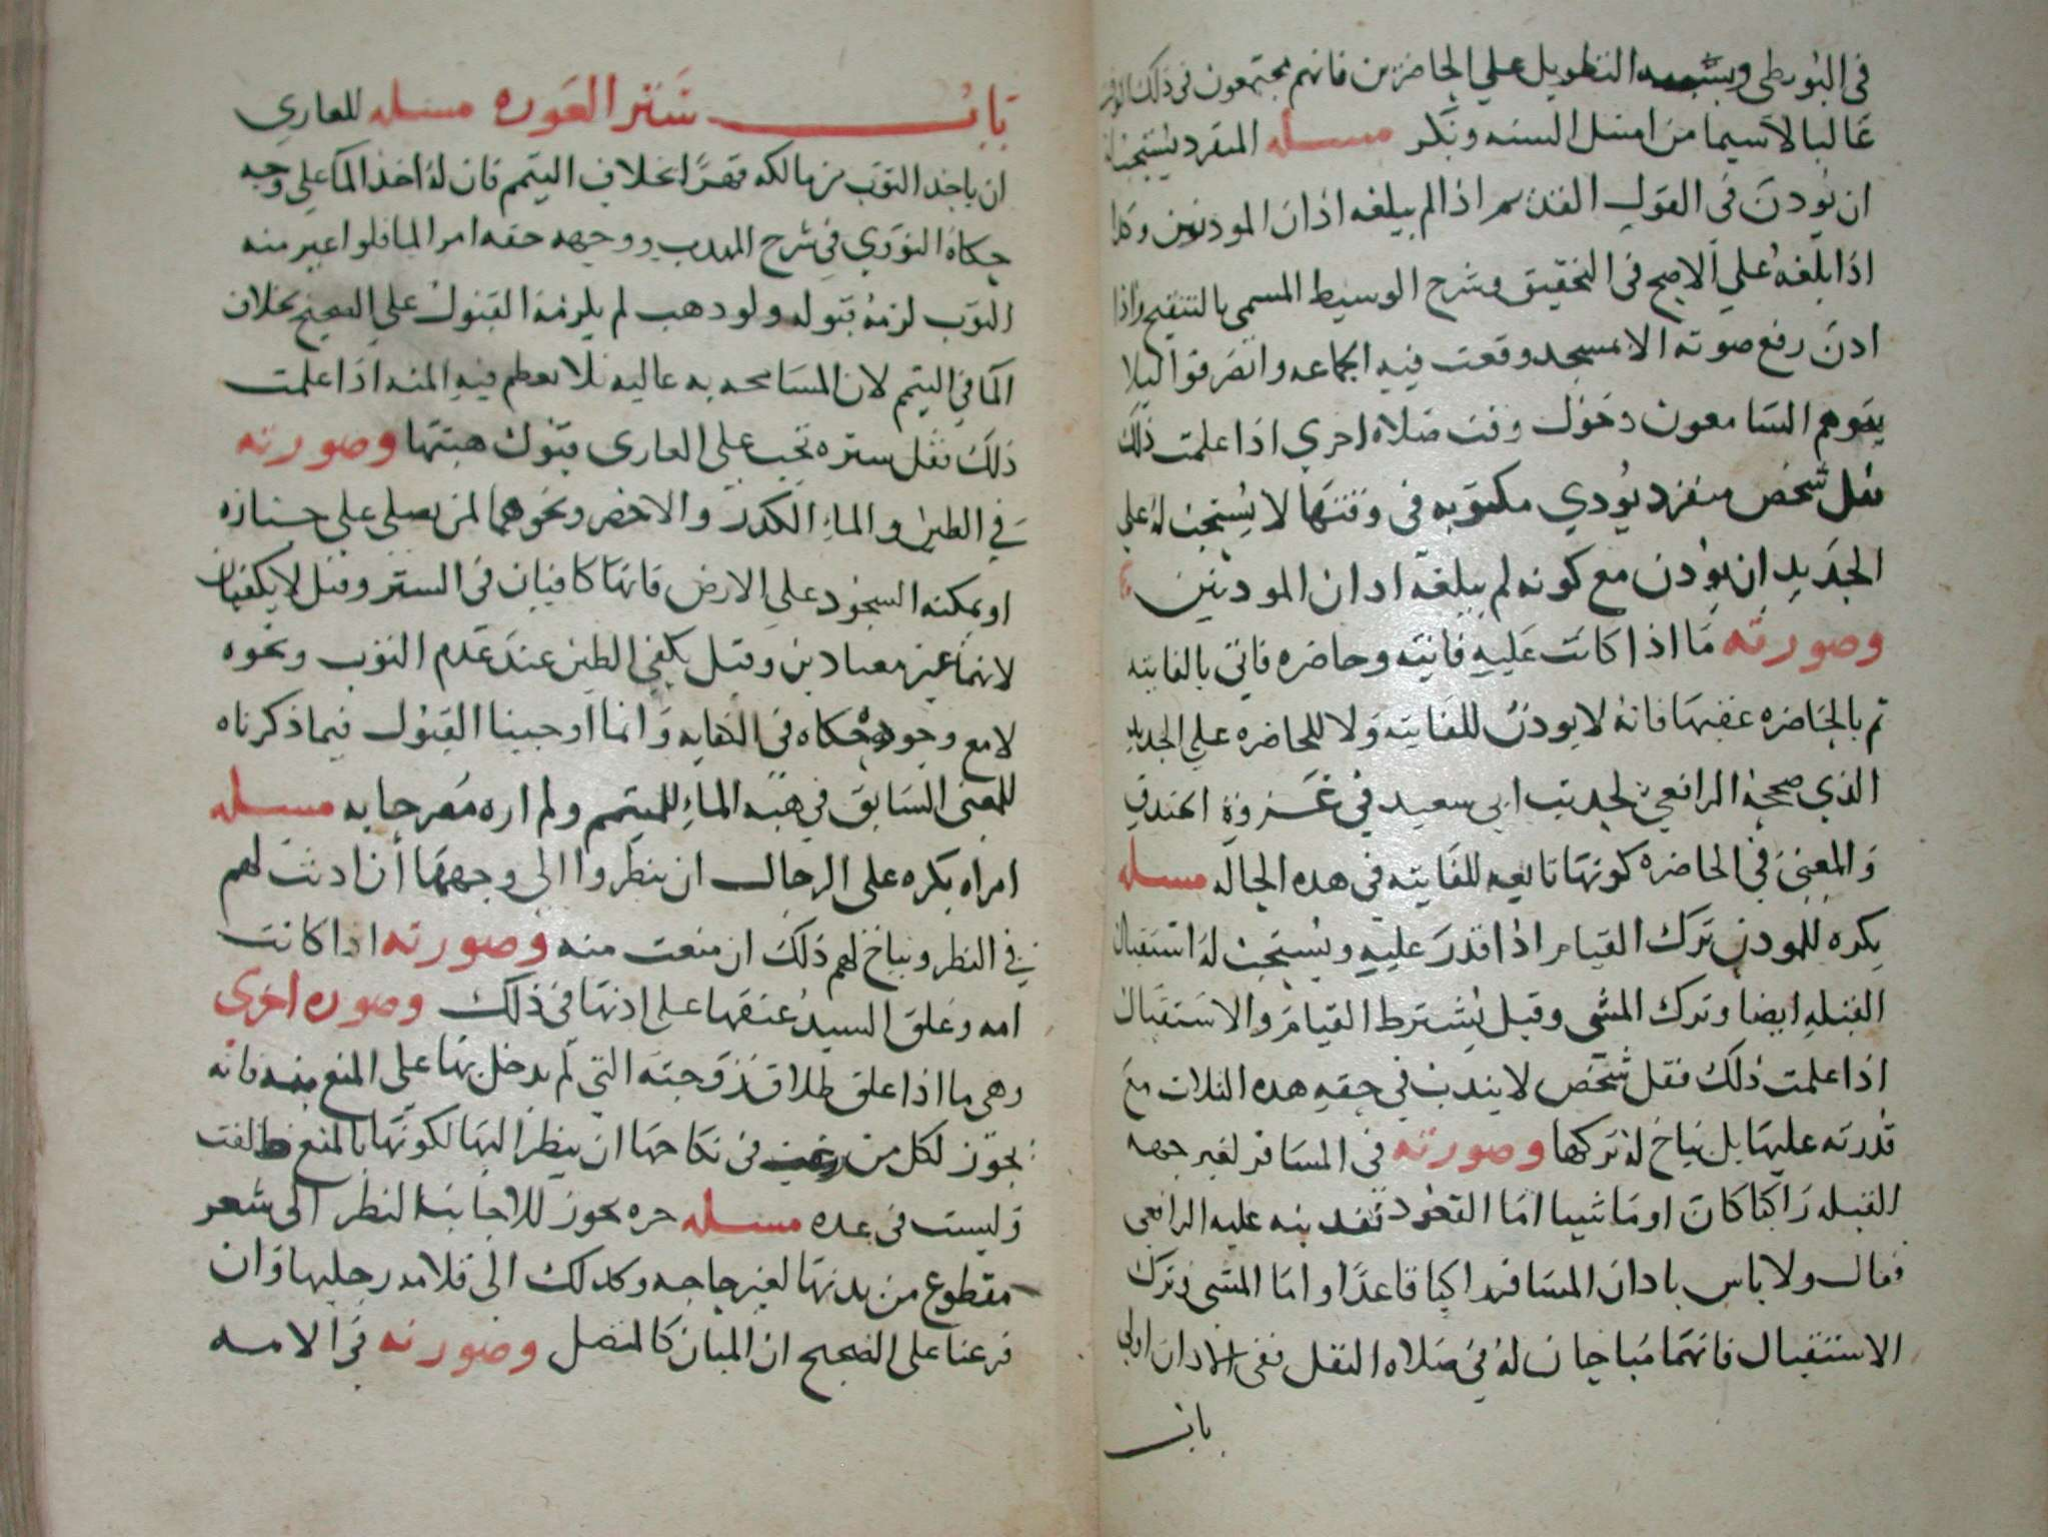 في البويطي التطويل علي الحاضرين فانهم مجتمعون في ذلك الوقت
غالبا لاسيما من امتثل السنه وبكر مسله المنفرد يستحب له
ان يوذن في القول القديم اذا لم يبلغه اذان الموذنين وكذا
اذا بلغه علي الاصح في التحقيق وشرح الوسيط المسمي بالتنقيح واذا
اذن رفع صوته الا بمسجد وقعت فيه الجماعه وانصرفوا ليلا
يتوهم السامعون دخول وقت صلاه اخري اذا علمت ذلك
فقل شخص منفرد يودي مكتوبه في وقتها لا يستحب له علي
الجديد ان يوذن مع كونه لم يبلغه اذان الموذنين
وصورته ما اذا كانت عليه فايته وحاضره فاتي بالفايته
ثم بالحاضره عقبها فانه لا يوذن للفايته ولا للحاضره علي الجديد
الذي صححه الرافعي لحديث ابي سعيد في غزوة الخندق
والمعني في الحاضره كونها تابعه للفايته في هذه الحاله مسله
يكره للموذن ترك القيام اذا قدر عليه ويستحب له استقبال
القبله ايضا وترك المشي وقيل يشترط القيام والاستقبال
اذا علمت ذلك فقل شخص لا يندب في حقه هذه الثلاث مع
قدرته عليها بل يباح له تركها وصورته في المسافر لغير جهه
القبله راكبا كان او ماشيا اما القعود فقد نبه عليه الرافعي
فقال ولا باس باذان المسافر راكبا قاعدا واما المشي وترك
الاستقبال فانهما مباحان له في صلاه النفل ففي الاذان اولي
باب
باب ستر العوره مسله للعاري
ان ياخذ الثوب من مالكه قهرا بخلاف التيمم فان له اخذ الما علي وجه
حكاه النووي في شرح المهذب ووجهه خفه امر الما فلو اعير منه
الثوب لزمه قبوله ولو وهب لم يلزمه القبول علي الصحيح بخلاف
الما في التيمم لان المسامحه به غالبه فلا يعظم فيه المنه اذا علمت
ذلك فقل ستره تجب علي العاري قبول هبتها وصورته
في الطين والماء الكدر والاخضر ونحوهما لمن يصلي علي جنازه
او يمكنه السجود علي الارض فانهما كافيان في الستر وقيل لا يكفيان
لانهما غير معتادين وقيل يكفي الطين عند عدم الثوب ونحوه
لا مع وجوده حكاه في النهايه وانما اوجبنا القبول فيما ذكرناه
للمعني السابق في هبه الماء للمتيمم ولم اره مصرحا به مسله
امراه يكره علي الرجال ان ينظروا الي وجهها ان اذنت لهم
في النظر ويباح لهم ذلك ان منعت منه وصورته اذا كانت
امه وعلق السيد عتقها علي اذنها في ذلك وصوره اخري
وهي ما اذا علق طلاق زوجته التي لم يدخل بها علي المنع منه فانه
يجوز لكل من رغب في نكاحها ان ينظر اليها لكونها بالمنع طالقت
وليست في عده مسله حره يجوز للاجانب النظر الي شعر
مقطوع من بدنها لغير حاجه وكذلك الي قلامه رجليها وان
فرعنا علي الصحيح ان المبان كالمتصل وصورته في الامه